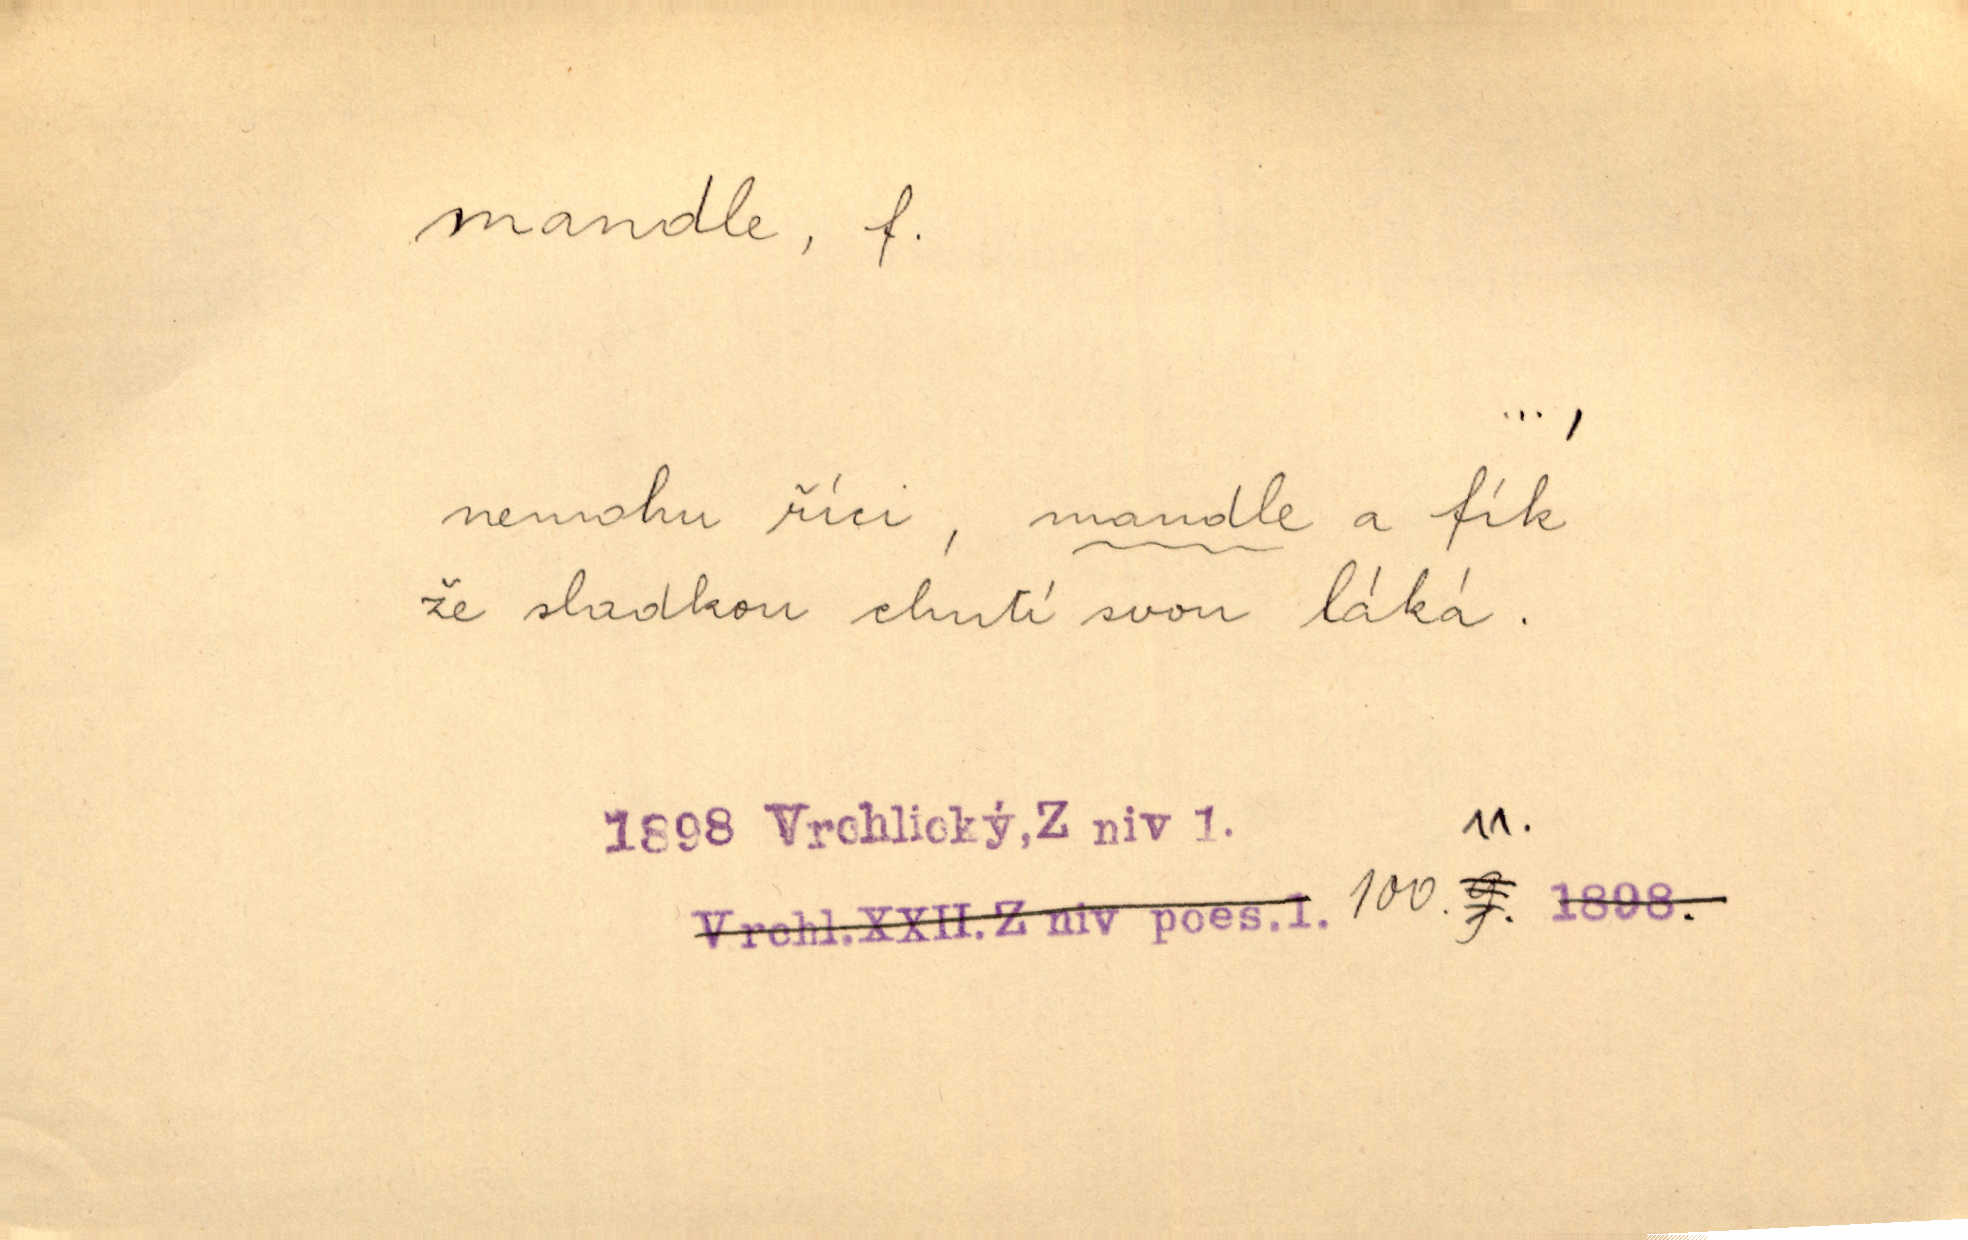 mandle, f.
... ,
nemohu říci, mandle a fík
že sladkou chutí svou láká.
1898 Vrchlický, Z niv 1.
11.
Vrchl.XXII.Z niv poes.1. 100. 1898.